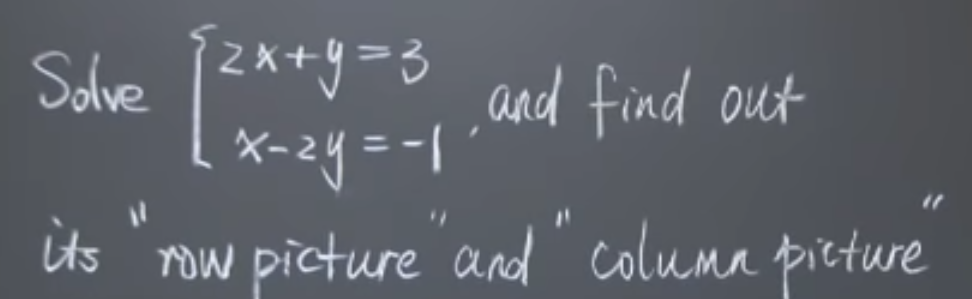 Solve { 2x+y=3
x-2y=-1 , and find out
its "row picture" and "column picture"